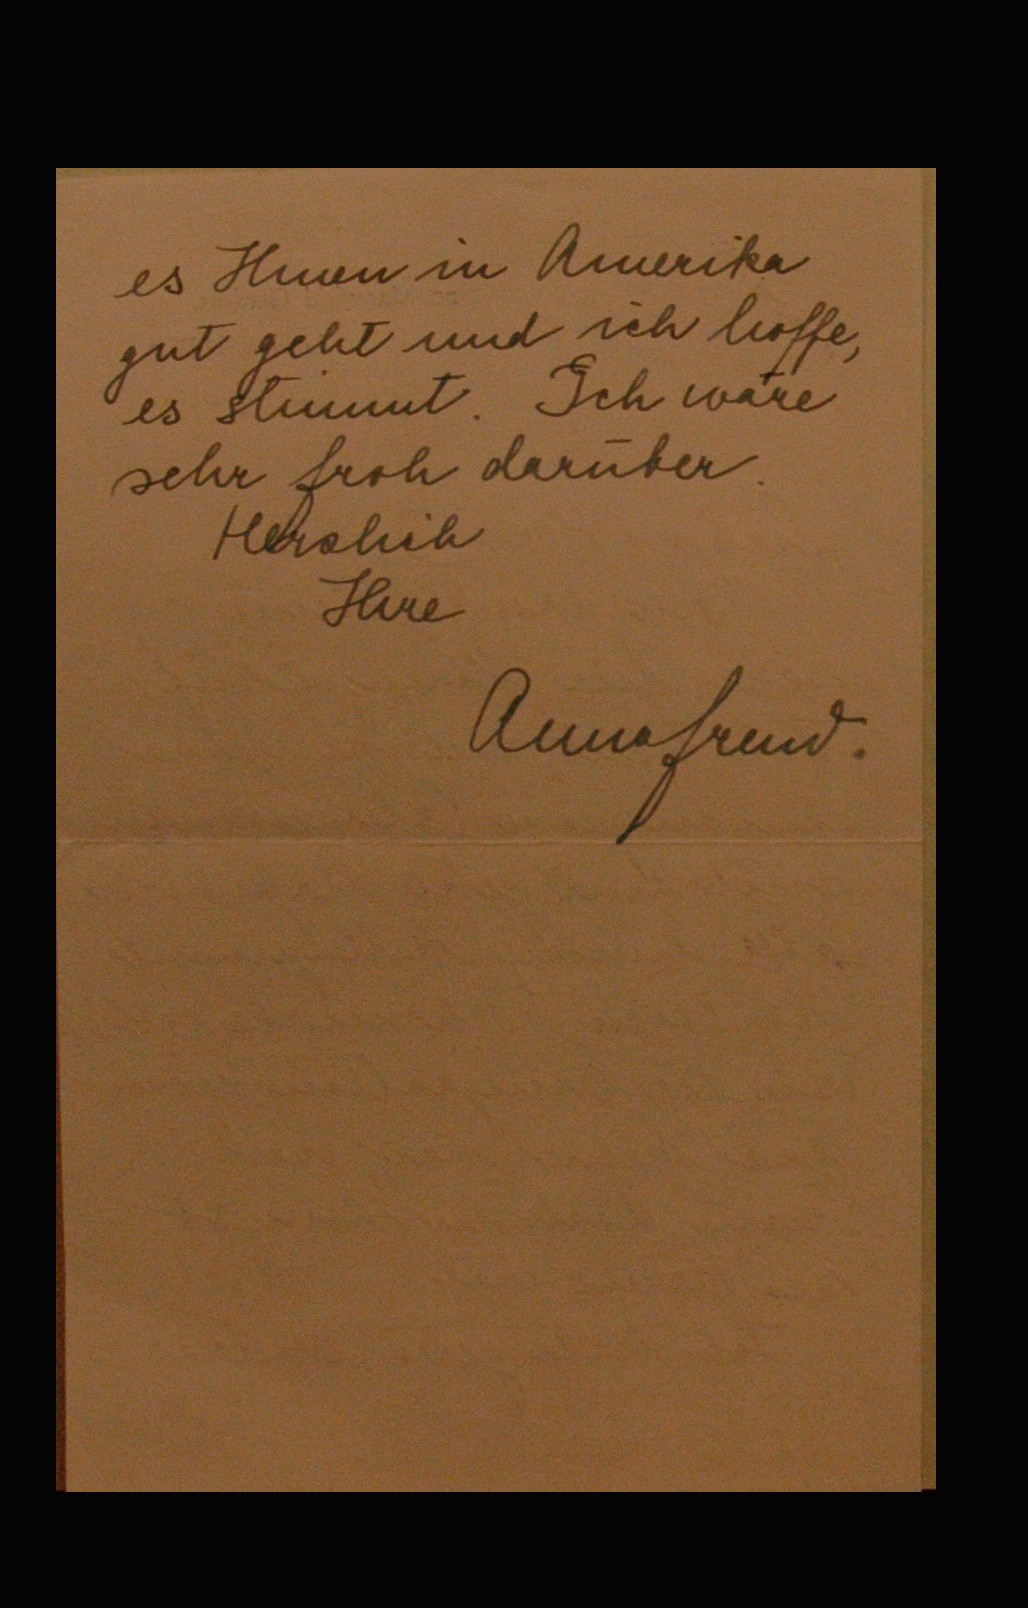 es Ihnen in Amerika
gut geht und ich hoffe,
es stimmt. Ich wäre
sehr froh darüber.
Herzlich
Ihre
Anna Freud.